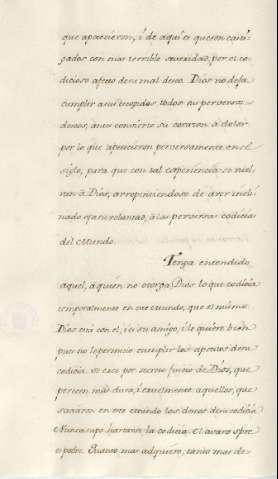 que apetecieron, i de aqui es que son casti-
gados con mas terrible severidad, por el co-
dicioso afecto de su mal deseo. Dios no deja
cumplir a sus escogidos todos sus perversos
deseos, antes convierte su corazon à dolor
por lo que apetecieron perversamente en el
siglo, para que con tal experiencia se vuel-
van à Dios, arrepintiendose de aver incli-
nado su voluntad, à las perversas codicias
del Mundo.
Tenga entendido
aquel, à quien no otorga Dios lo que codicia
temporalmente en este mundo, que el mismo
Dios està con el, i es su amigo, i le quiere bien
pues no le permite cumplir los apetitos de su
codicia. Es caso por secreto juicio de Dios, que
perecen mas dura, i cruelmente aquellos, que
sacaron en este mundo los deseos de su codicia
Nunca supo hartarse la codicia. El avaro spre
es pobre. Quanto mas adquiere, tanto mas de-